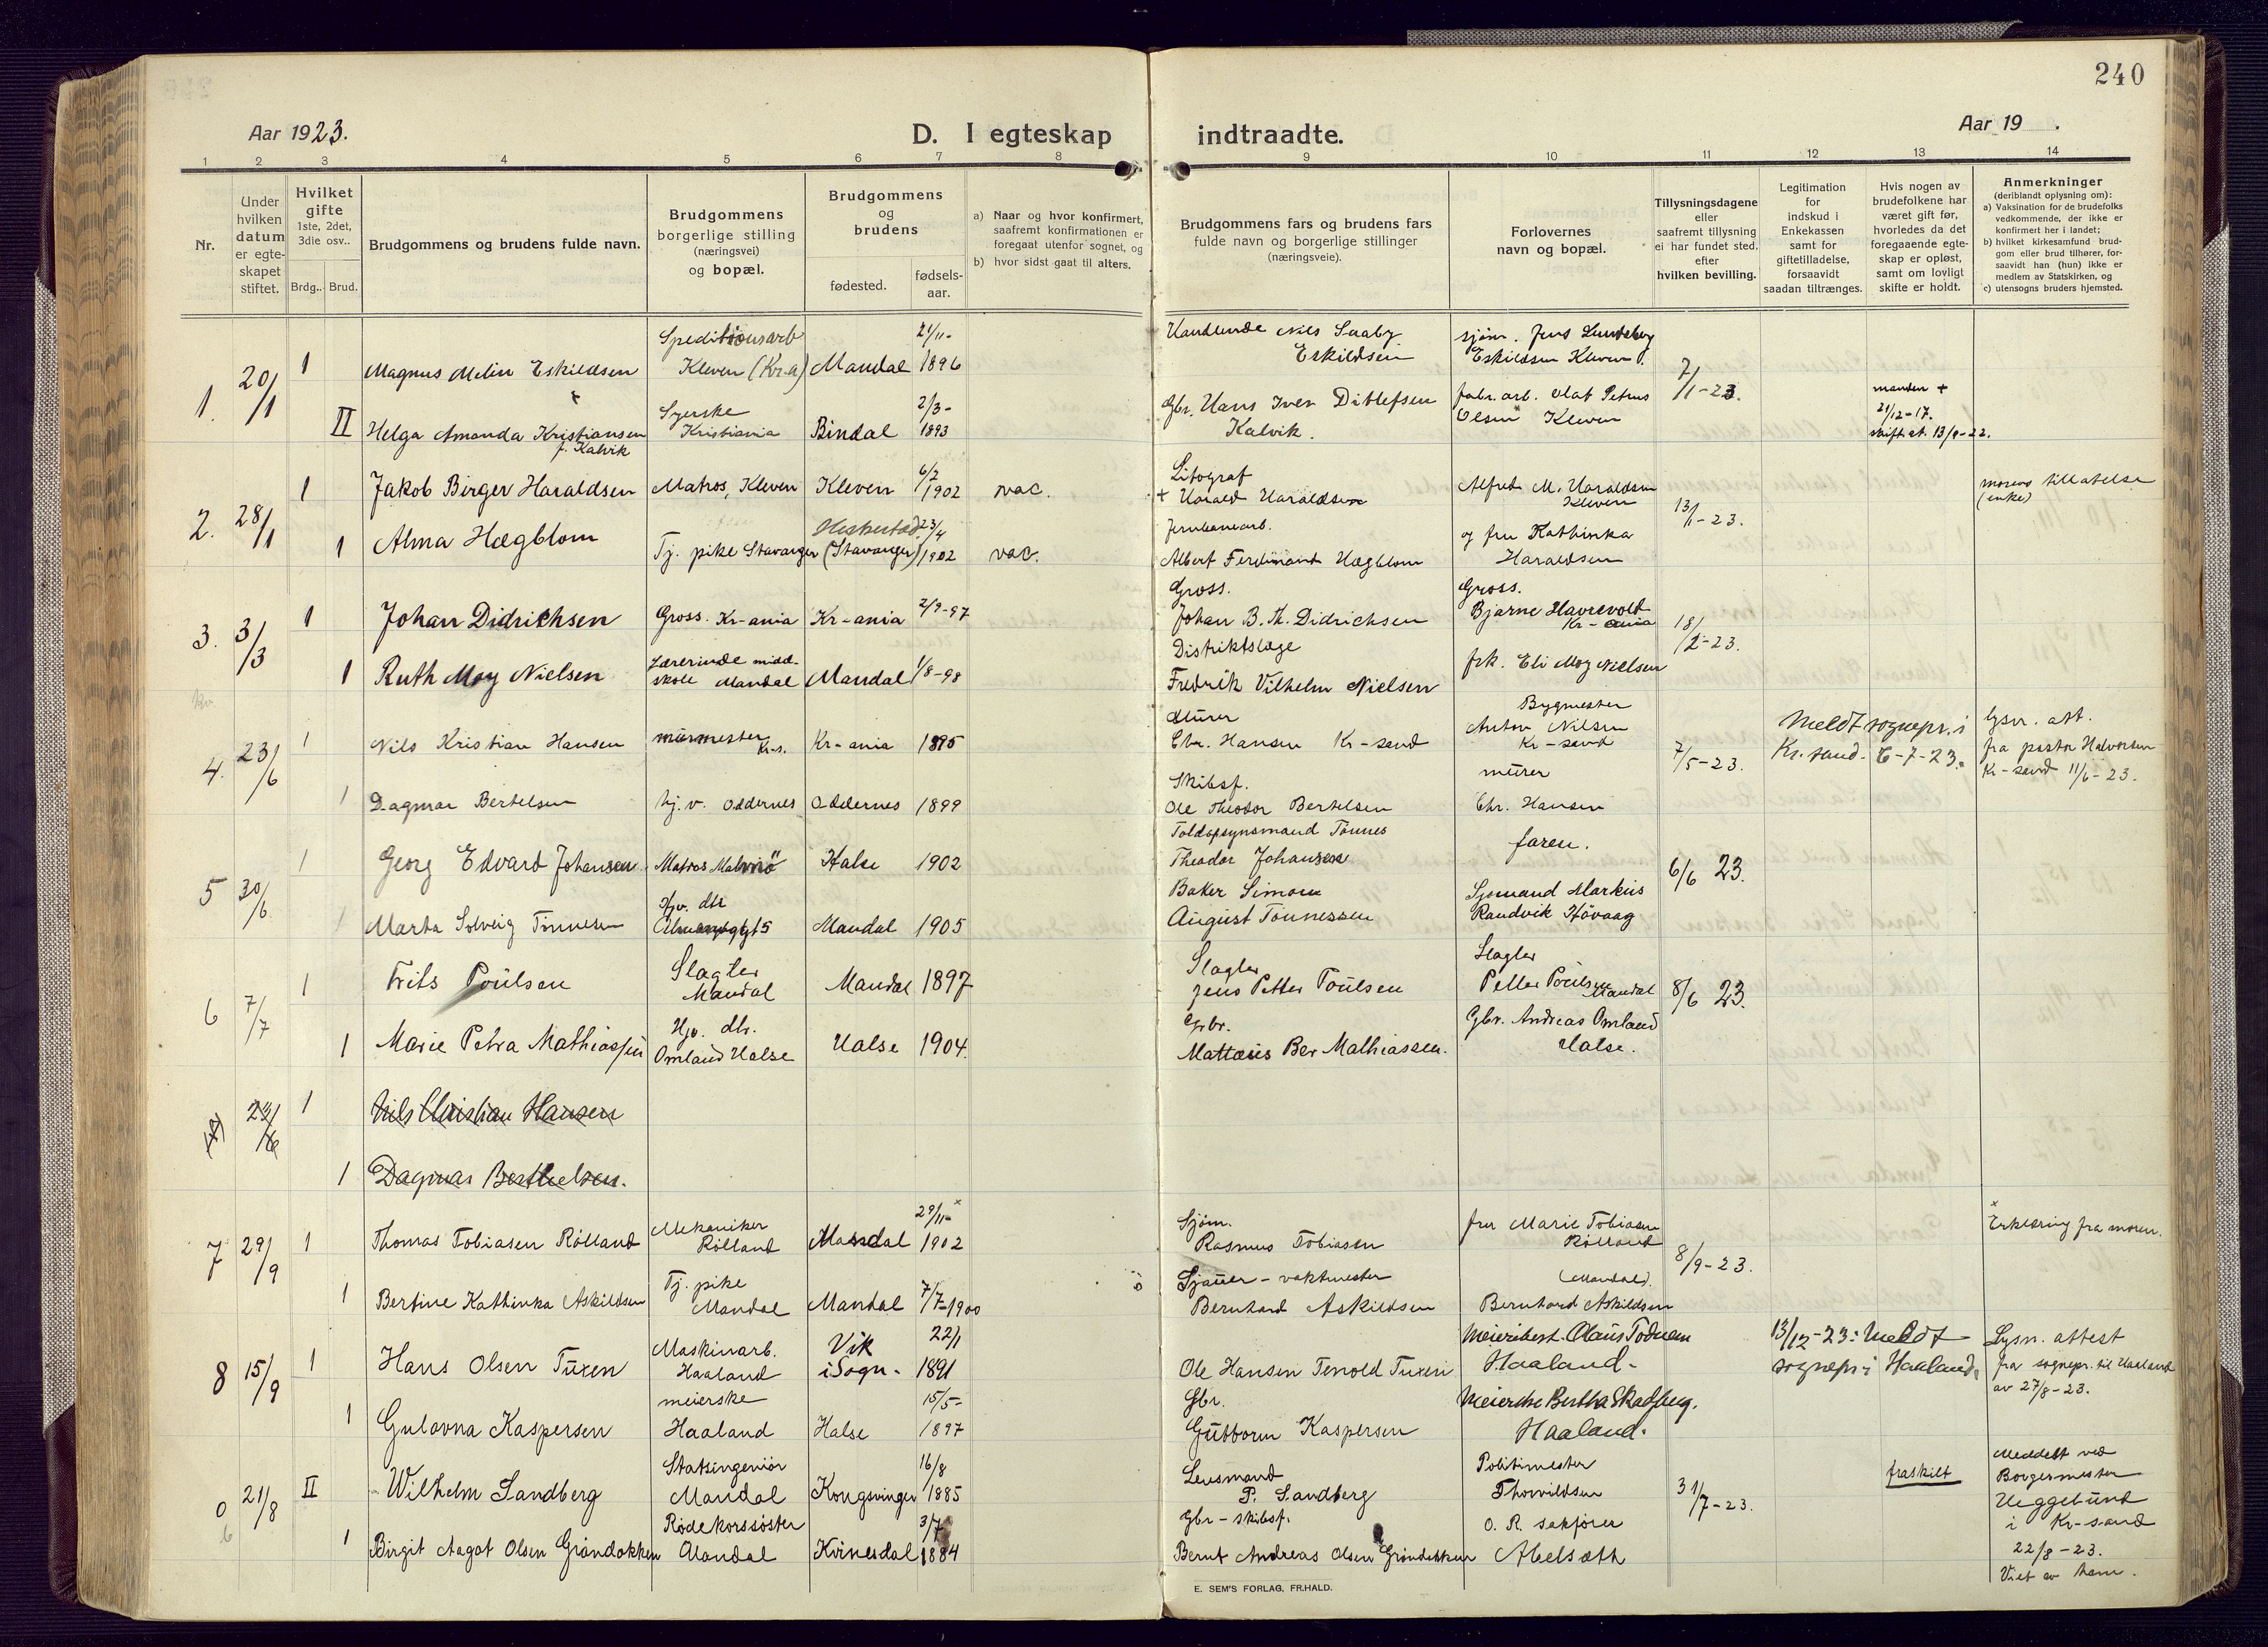 240
Aar 1923.
D. I egteskap indtraadte.
Aar 19 .
1 2 3 4 5 6 7 8 9 10 11 12 13 14
Nr.
Under hvilken datum er egte-skapet stiftet.
Hvilket gifte 1ste, 2det, 3die osv..
Brdg.. Brud.
Brudgommens og brudens fulde navn.
Brudgommens borgerlige stilling (næringsvei) og bopæl.
Brudgommens og brudens
fødested.
fødsels-aar.
a) Naar og hvor konfirmert, saafremt konfirmationen er foregaat utenfor sognet, og
b) hvor sidst gaat til alters.
Brudgommens fars og brudens fars fulde navn og borgerlige stillinger (næringsveie).
Forlovernes navn og bopæl.
Tillysningsdagene eller saafremt tillysning ei har fundet sted. efter hvilken bevilling.
Legitimation for indskud i Enkekassen samt for giftetilladelse, forsaavidt saadan tiltrænges.
Hvis nogen av brudefolkene har været gift før, hvorledes da det foregaaende egte-skap er opløst, samt om lovligt skifte er holdt.
Anmerkninger
(deriblandt oplysning om):
a) Vaksination for de brudefolks vedkommende, der ikke er konfirmert her i landet;
b) hvilket kirkesamfund brud-gom eller brud tilhører, for-saavidt han (hun) ikke er medlem av Statskirken, og
c) utensogns bruders hjemsted.
1. 20/1 1 Magnus Melin Eskildsen Speditionsarb Kleven (Kr-a) Mandal 21/11-1896
Handlende Nils Saaby Eskildsen
sjøm. Jens Lundeberg Eskildsen Kleven
7/1-23.
II Helga Amanda Kristiansen f. Kalvik Syerske Kristiania Bindal 2/3-1893
Gbr. Hans Iver Ditlefsen Kalvik.
fabr. arb. Olaf Petrus Olsen Kleven
manden + 21/12-17. skift. at. 13/9-22.
2. 28/1 1 Jakob Birger Haraldsen Matros, Kleven Kleven 6/7 1902 vac.
Litograf + Harald Haraldsen
Alfred M. Haraldsen Kleven
13/1-23.
morens tillatelse (enke)
1 Alma Hægblom Tj. pike Stavanger Heskestad (Stavanger) 23/4 1902 vac.
Jernbanearb. Albert Ferdinant Hægblom
og fru Kathinka Haraldsen
3. 3/3 1 Johan Didrichsen Gross. Kr-ania Kr-ania 2/9-97
Gross. Johan B. Th. Didrichsen
Gross. Bjarne Havrevold Kr-ania
18/2-23.
1 Ruth Moy Nielsen Lærerinde midd-skole Mandal Mandal 1/8-98
Distriktslæge Fredrik Vilhelm Nielsen
frk. Eli Moy Nielsen
4. 23/6 1 Nils Kristian Hansen murmester Kr-s. Kr-ania 1895
Murer Chr. Hansen Kr-sand
Bygmester Anton Nilsen Kr-sand
7/5-23.
Meldt sognepr. i Kr.sand. 6-7-23.
lysn. att. fra pastor Halvorsen Kr-sand 11/6-23.
1 Dagmar Bertelsen hj. v. Oddernes Oddernes 1899
Skibsf. Ole Theodor Bertelsen
murer Chr. Hansen
5 30/6 1 Georg Edvard Johansen Matros Malmö Halse 1902
Toldopsynsmand Tönnes Theodor Johansen
faren.
6/6 23.
1 Marta Solveig Tönnesen Hjv. dtr Mandal 1905
Baker Simon August Tönnessen
Sjømand Markus Randvik Hövaag
6 7/7 1 Frits Poulsen Slagter Mandal Mandal 1897
Slagter Jens Petter Poulsen
Slagter Petter Poulsen Mandal
8/6 23.
1 Marie Petra Mathiassen Hjv. dtr. Omland Halse Halse 1904.
Gbr. Mattæus Ber Mathiassen.
Gbr. Andreas Omland Halse.
23/6 1 Nils Christian Hansen
1 Dagmar Berthelsen.
7 29/9 1 Thomas Tobiasen Rölland Mekaniker Rölland Mandal 29/11-x 1902
Sjøm. Rasmus Tobiasen
fru Marie Tobiasen Rölland (Mandal).
8/9-23.
x Erklæring fra moren.
1 Bertine Kathinka Askildsen Tj. pike Mandal Mandal 7/7-1900
Sjauer-vaktmester Bernhard Askildsen
Bernhard Askildsen
8 15/9 1 Hans Olsen Tuxen Maskinarb. Haaland Vik i Sogn- 22/1 1891
Ole Hansen Tenold Tuxen
Meieribest. Olaus Todnem Haaland-
13/12-23: Meldt sognepr. i Haaland.
Lysn. attest fra sognepr. til Haaland av 27/8-23.
1 Gulovna Kaspersen meierske Haaland Halse 15/5-1897
Gbr. Guttorm Kaspersen
Meierske Bertha Skadberg. Haaland.
21/8 II Wilhelm Sandberg Statsingeniør Mandal Kongsvinger 16/8 1885
Lensmand P. Sandberg
Politimester Thorvildsen
31/7-23.
fraskilt
Meddelt ved Borgermester i Kr-sand 22/8-23. Viet av ham.
1 Birgit Aagot Olsen Gröndokken Rødekorssøster Mandal Kvinesdal 3/7 1884
Gbr-skibsf. Bernt Andreas Olsen Gröndokken
O. R. sakfører Abelsæth
E. SEM'S FORLAG, FR.HALD.